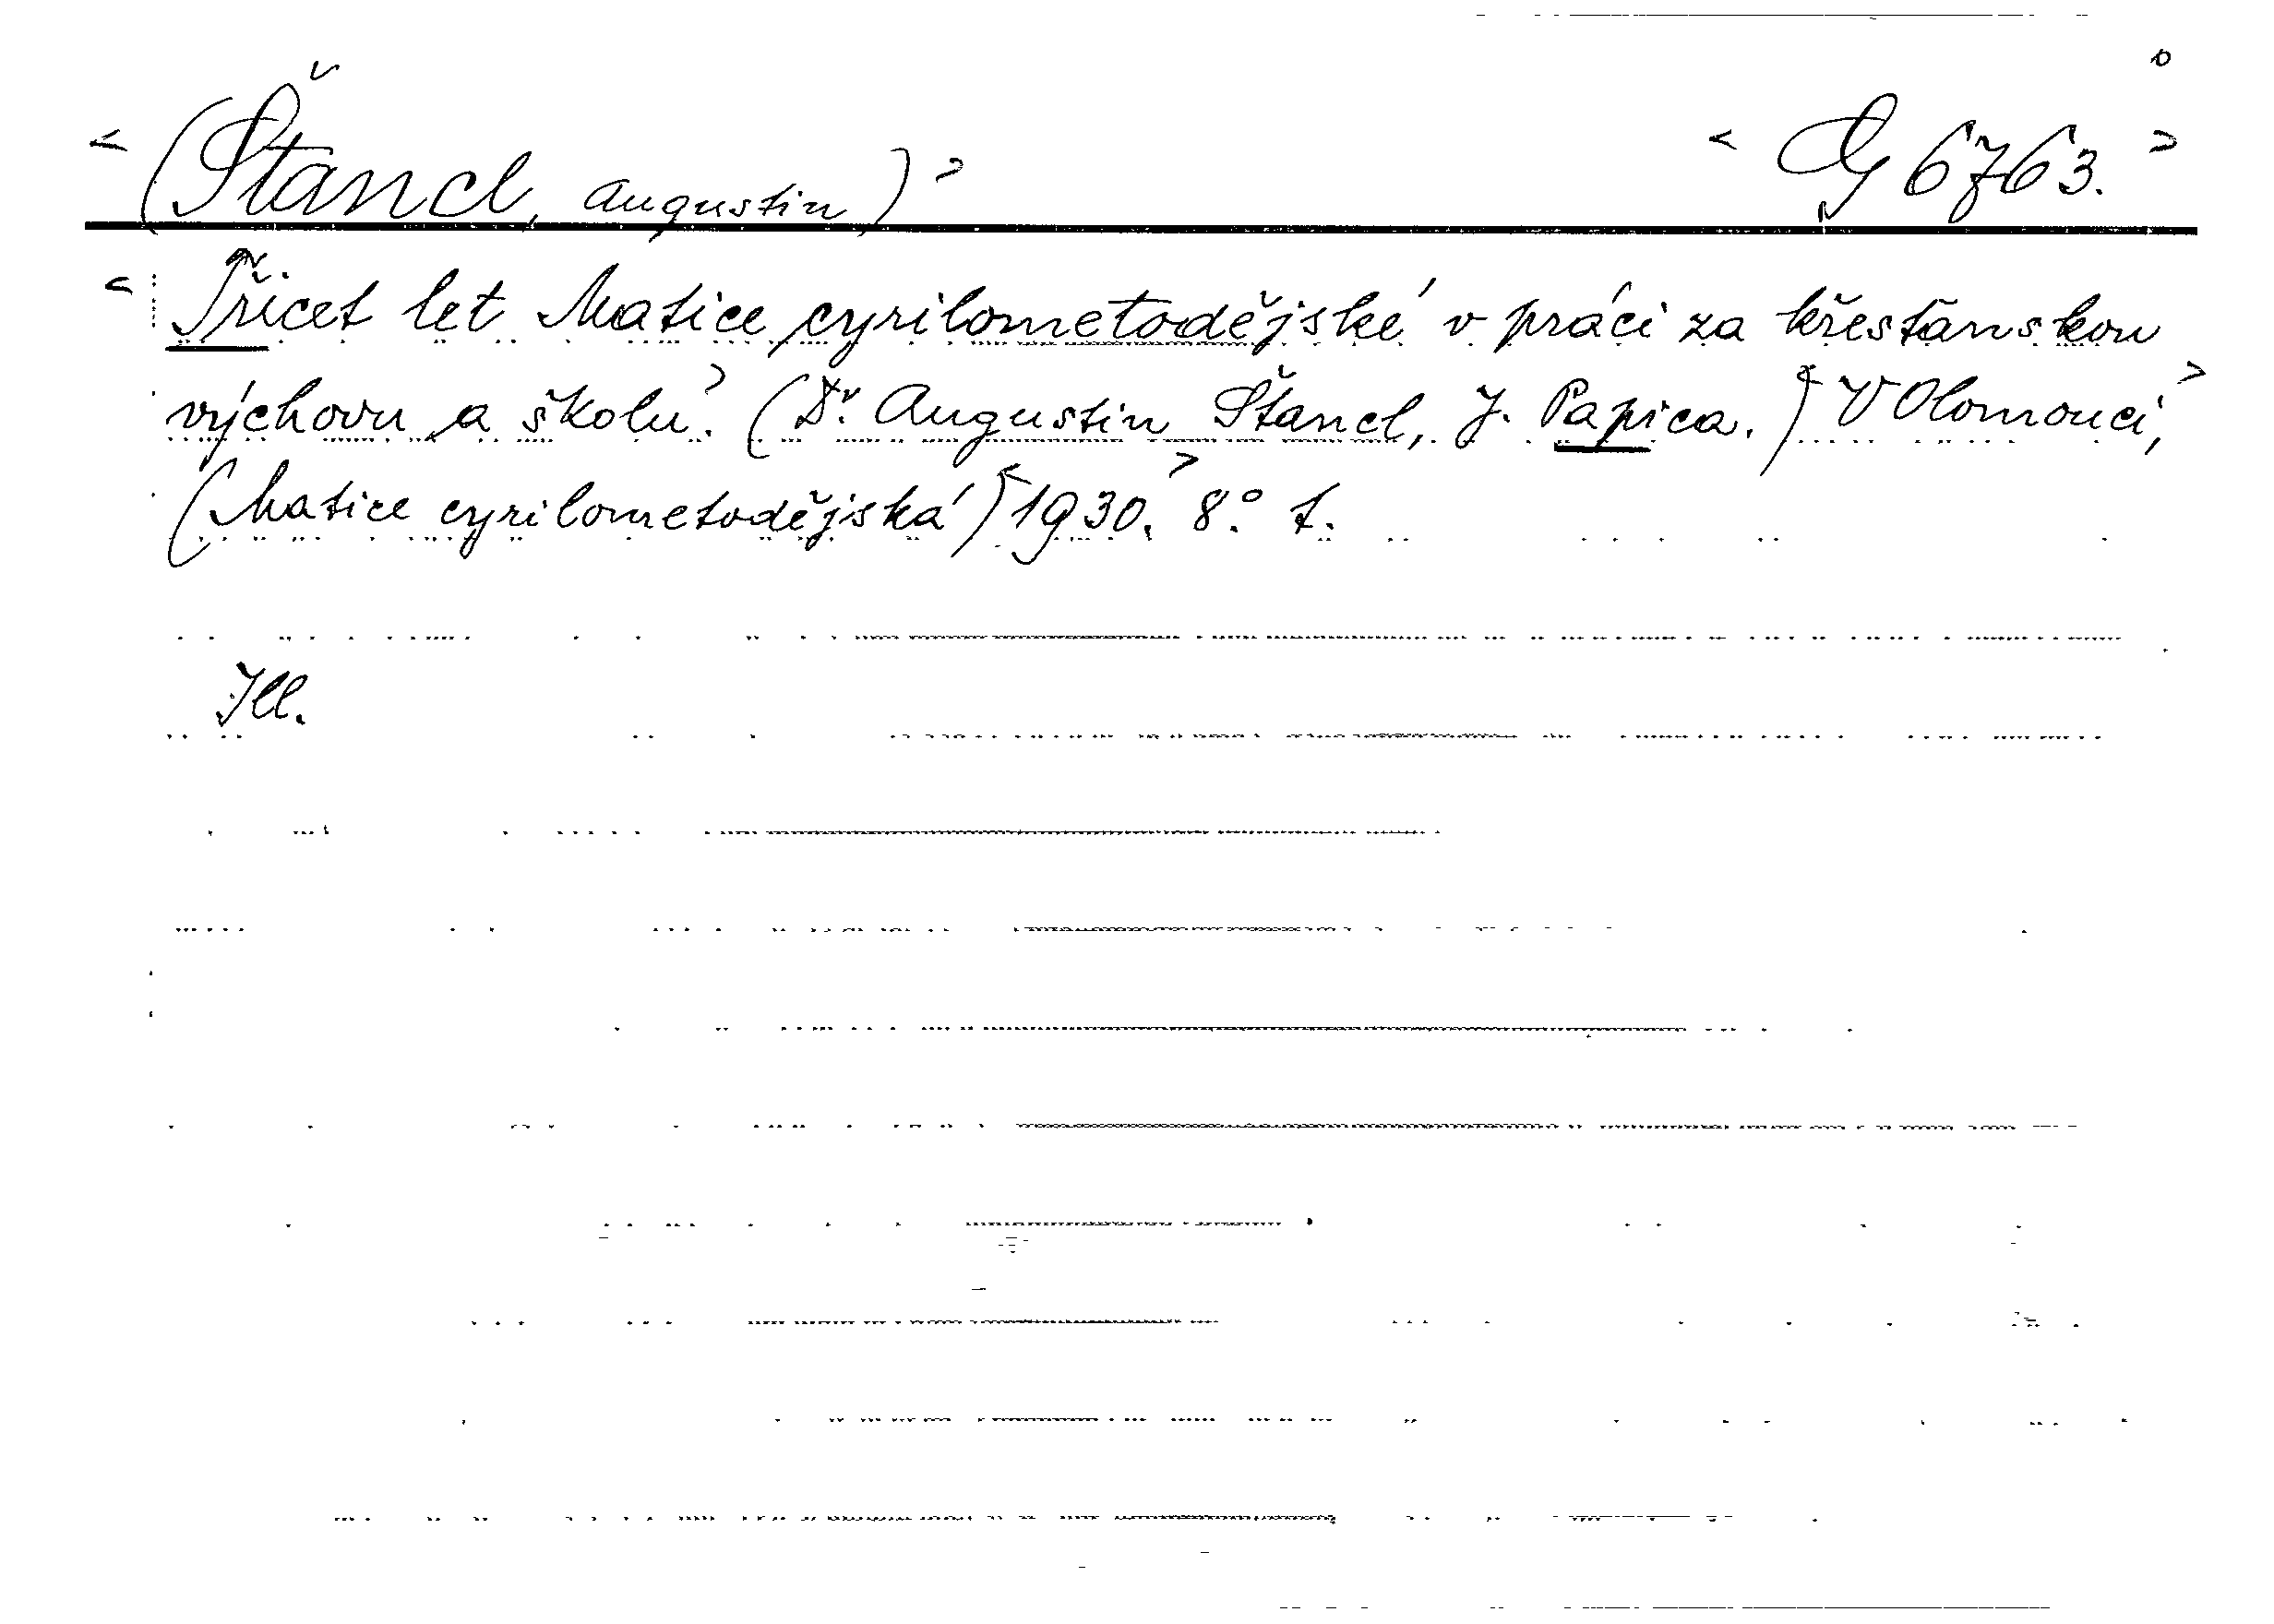 < (Štancl, Augustin) > < G 6763. >
< Třicet let Matice cyrilometodějské v práci za křesťanskou
výchovu a školu.> (Dr. Augustin Štancl, J. Papica.) < V Olomouci, >
(Matice cyrilometodějská) < 1930. > 8.° t.
Ill.